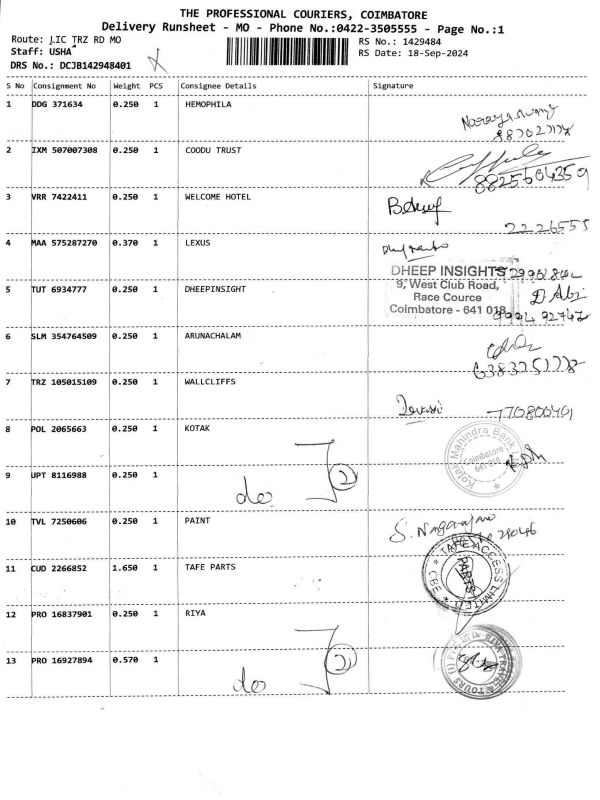 THE PROFESSIONAL COURIERS, COIMBATORE
Delivery Runsheet - MO - Phone No.:0422-3505555 - Page No.:1
Route: LIC TRZ RD MO
RS No.: 1429484
Staff: USHA
RS Date: 18-Sep-2024
DRS No.: DCJB142948401
S No Consignment No Weight PCS Consignee Details Signature
1 DDG 371634 0.250 1 HEMOPHILA
2 IXM 507007308 0.250 1 COODU TRUST
8825604359
3 VRR 7422411 0.250 1 WELCOME HOTEL
2226555
4 MAA 575287270 0.370 1 LEXUS
DHEEP INSIGHTS
9, West Club Road,
Race Cource
Coimbatore - 641 018
5 TUT 6934777 0.250 1 DHEEPINSIGHT
6 SLM 354764509 0.250 1 ARUNACHALAM
7 TRZ 105015109 0.250 1 WALLCLIFFS
8 POL 2065663 0.250 1 KOTAK
Kotak Mahindra Bank
Coimbatore
641 018
9 UPT 8116988 0.250 1 do 2
10 TVL 7250606 0.250 1 PAINT
S. Nagarajan
11 CUD 2266852 1.650 1 TAFE PARTS
TAFE ACCESS LIMITED
PARTS
CBE
12 PRO 16837901 0.250 1 RIYA
13 PRO 16927894 0.570 1 do 2
TRAVEL & TOURS (I) PVT LTD